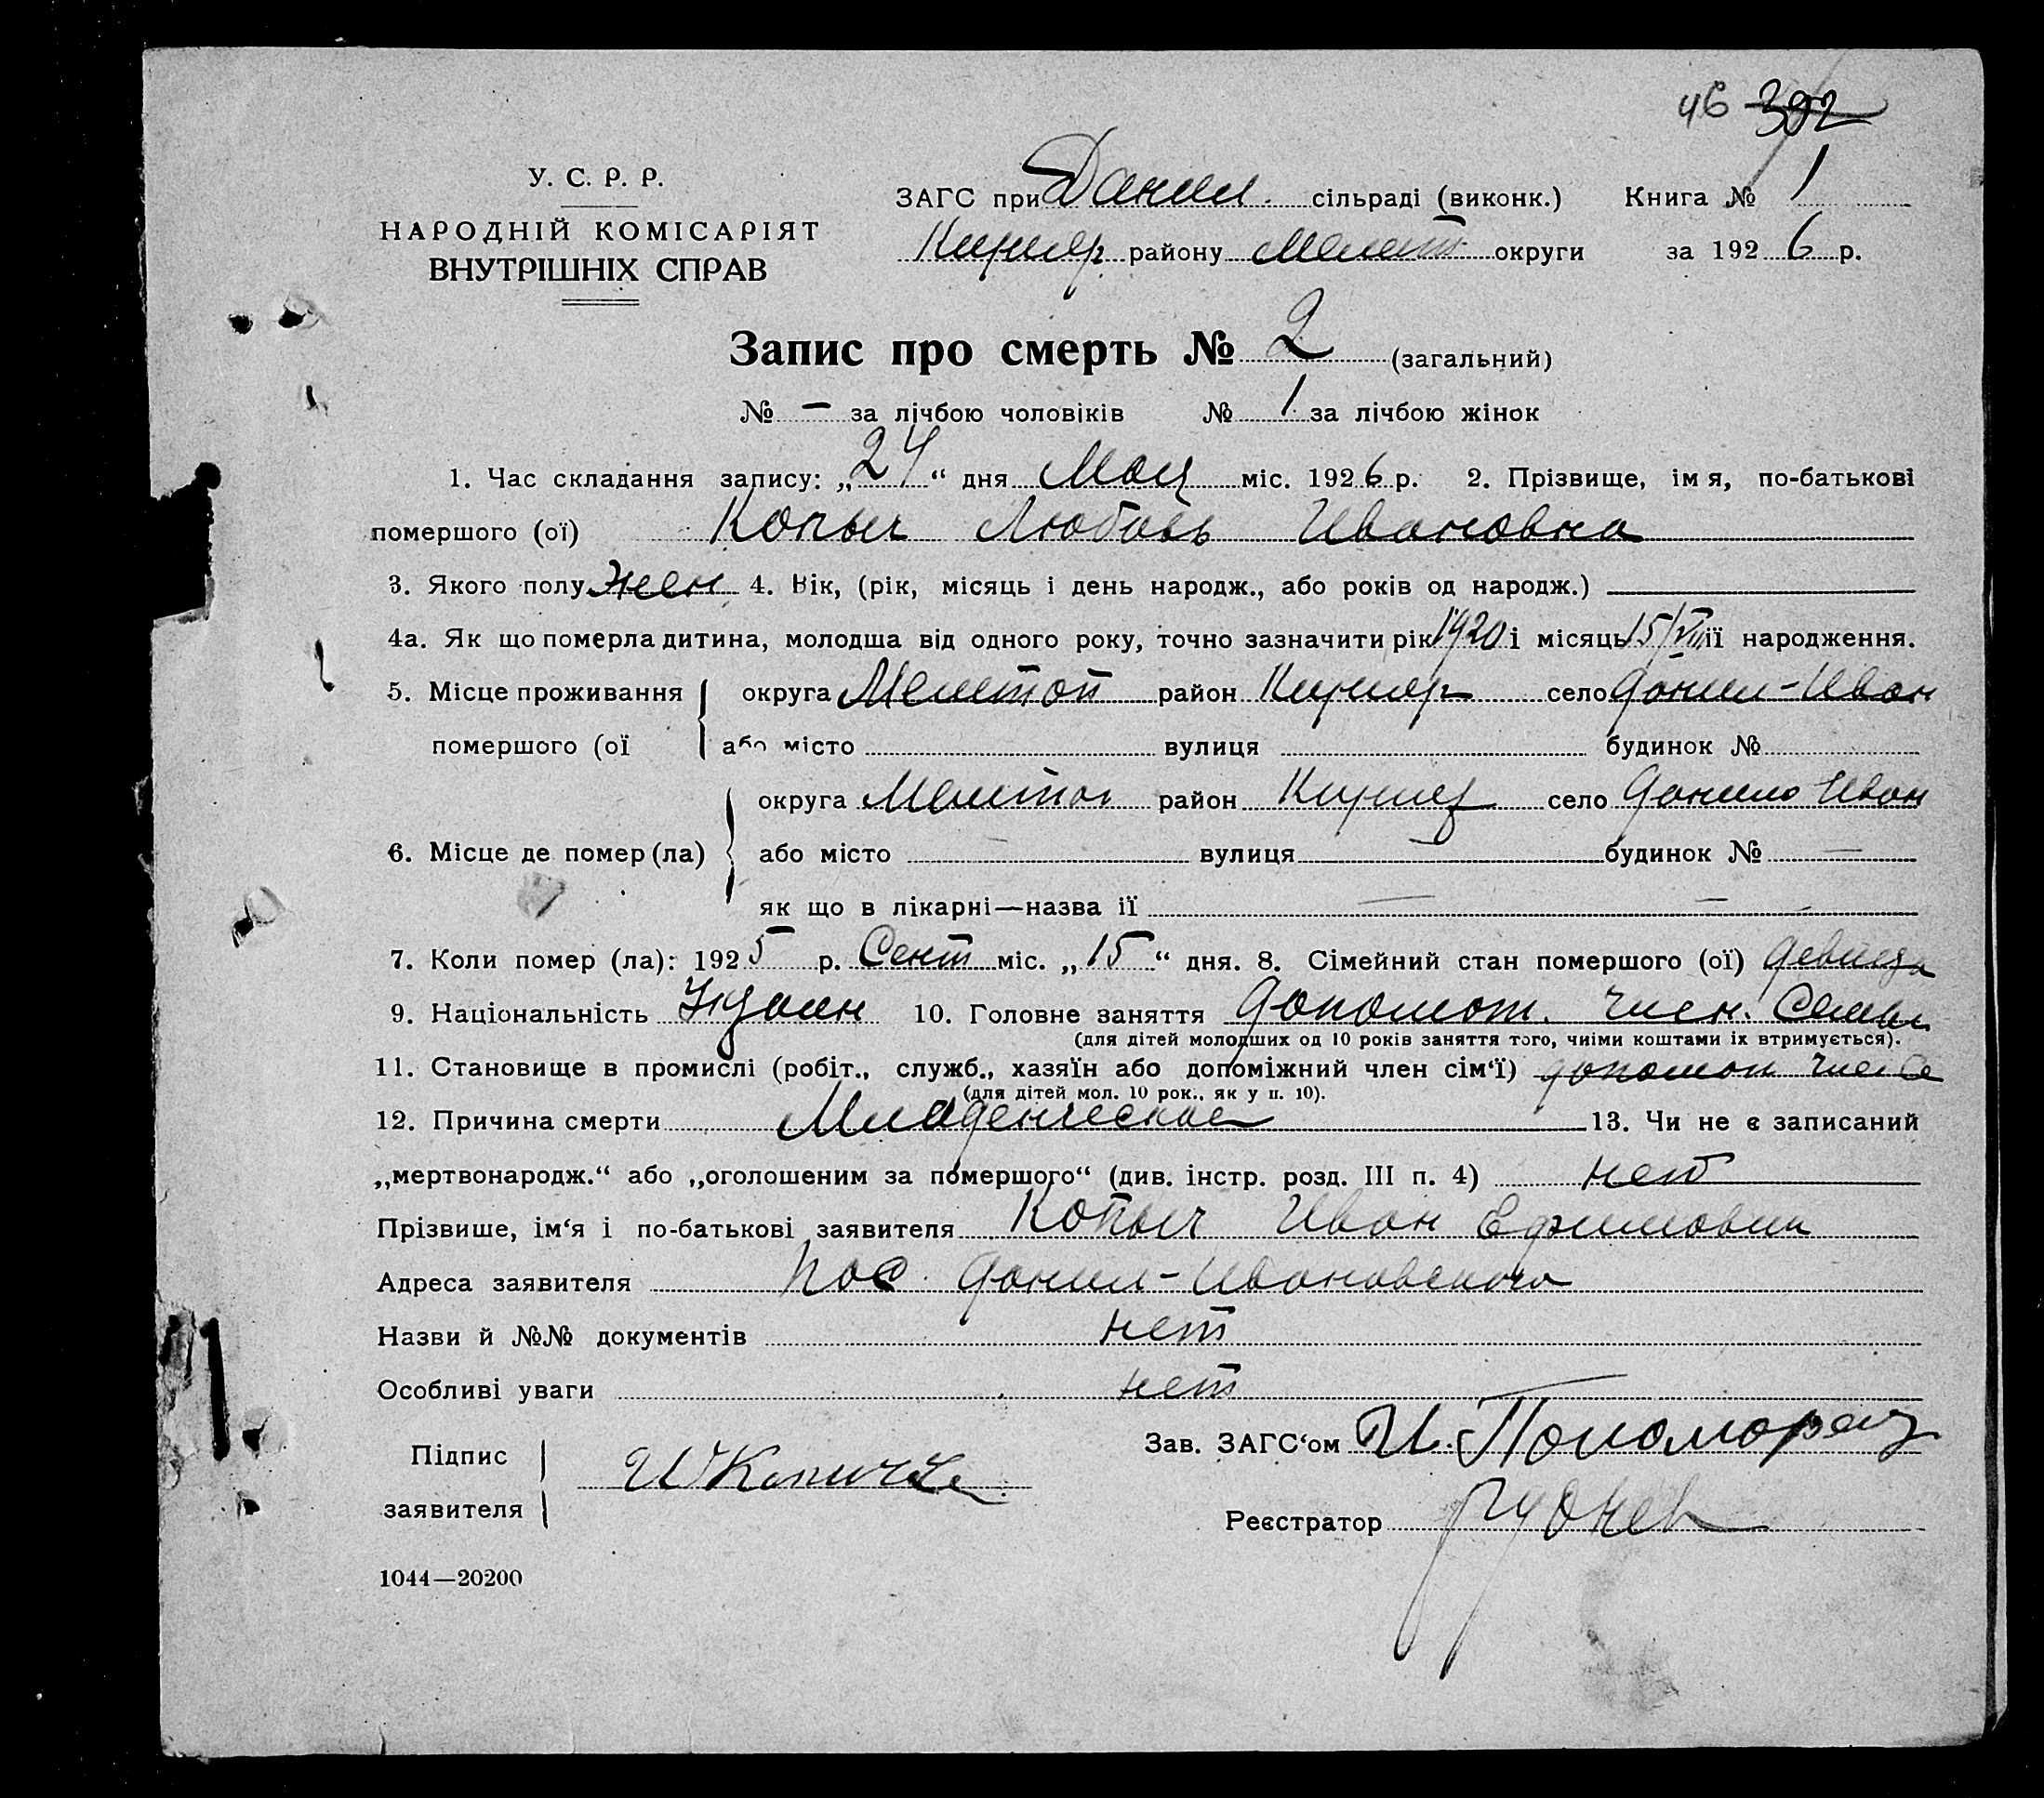 46 392
У. С. Р. Р.
НАРОДНІЙ КОМІСАРІЯТ
ВНУТРІШНІХ СПРАВ
ЗАГС при Данил. сільраді (виконк.) Книга № 1
району Мелит. округи за 1926 р.
Запис про смерть № 2 (загальний)
№ – за лічбою чоловіків № 1 за лічбою жінок
1. Час складання запису: „24“ дня міс. 1926 р. 2. Прізвище, імя, по-батькові
помершого (ої) Копыч Любовь Ивановна
3. Якого полу жен 4. Вік, (рік, місяць і день народж., або років од народж.)
4а. Як що померла дитина, молодша від одного року, точно зазначити рік 1920 і місяць 15/VIII її народження.
5. Місце проживання округа Мелитоп район село Данил-Иван
помершого (ої або місто вулиця будинок №
округа Мелитоп район село Данило Иван
6. Місце де помер (ла) або місто — вулиця — будинок № —
як що в лікарні—назва її — —
7. Коли помер (ла): 1925 р. Сент міс. „15“ дня. 8. Сімейний стан помершого (ої) девица
9. Національність 10. Головне заняття допомог. член. Семьи
(для дітей молодших од 10 років заняття того, чиїми коштами їх втримується).
11. Становище в промислі (робіт., служб., хазяїн або допоміжний член сім‘ї) допомог член С
(для дітей мол. 10 рок., як у п. 10).
12. Причина смерти Младенческая 13. Чи не є записаний
„мертвонародж.“ або „оголошеним за помершого“ (див. інстр. розд. III п. 4) нет
Прізвище, ім‘я і по-батькові заявителя Копыч Иван Ефимович
Адреса заявителя пос. Данил-Ивановского
Назви й №№ документів нет
Особливі уваги нет
Підпис
заявителя
Зав. ЗАГС‘ом И. Пономарец
Реєстратор
1044—20200